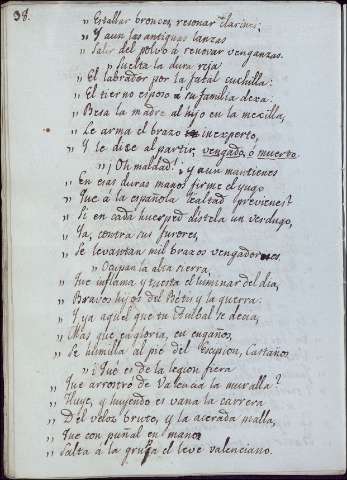 38.
„ Estallar bronces, resonar clarines;
„ Y aun las antiguas lanzas
„ Salir del polvo á renovar venganzas.
„ Suelta la dura reja
„ El labrador por la fatal cuchilla:
„ El tierno esposo á su familia dexa:
„ Besa la madre al hijo en la mexilla,
„ Le arma el brazo inexperto,
„ Y le dice al partir, vengado, ó muerto.
„ ¡Oh maldad! ¿y aun mantienes
„ En esas duras manos firme el yugo
„ Que á la española lealtad previenes?
„ Si en cada huesped distela un verdugo,
„ Ya, contra sus furores,
„ Se levantan mil brazos vengadores.
„ Ocupan la alta sierra,
„ Que inflama y tuesta el luminar del dia,
„ Bravos hijos del Betis y la guerra:
„ Y ya aquel que tu Anibal se decia,
„ Mas que en gloria, en engaños,
„ Se humilla al pie del Escipion, Castaños.
„ ¿Que es de la legion fiera
„ Que arrostro de Valencia la muralla?
„ Huye, y huyendo es vana la carrera
„ Del veloz bruto, y la acerada malla,
„ Que con puñal en mano
„ Salta á la grupa el leve valenciano.